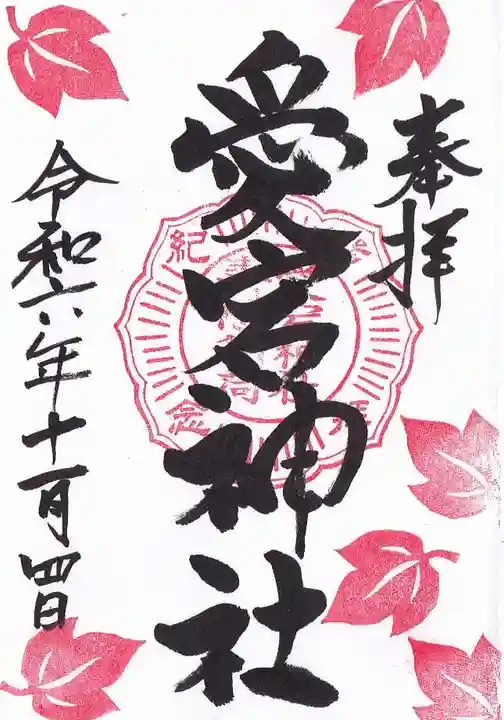 奉拝
愛宕神社
令和六年十一月四日